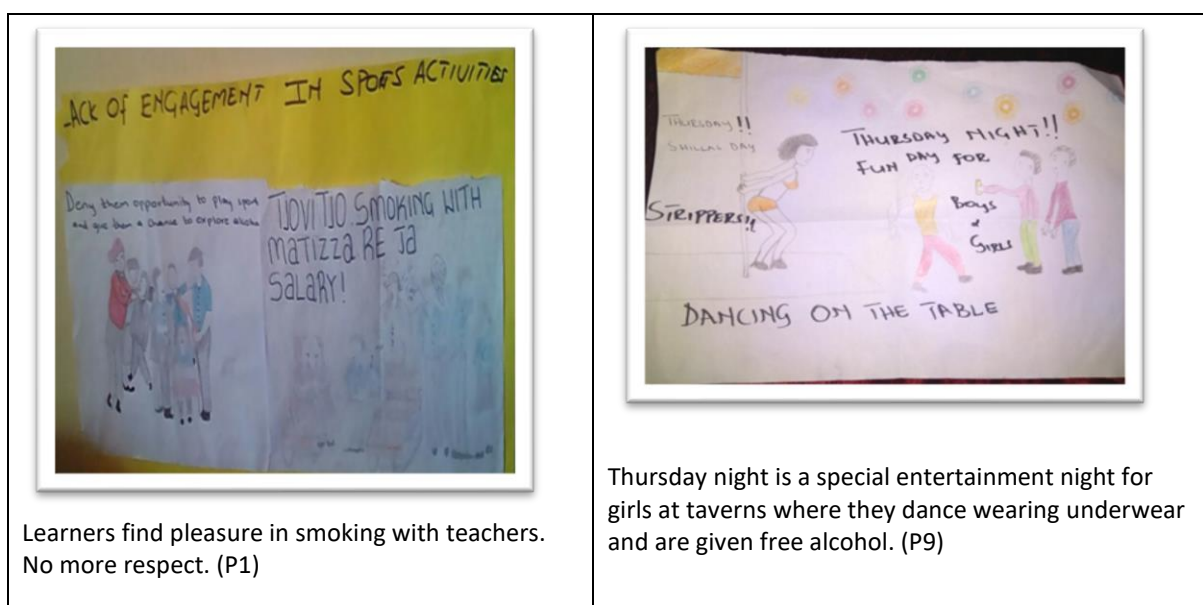 LACK OF ENGAGEMENT IN SPORTS ACTIVITIES
Deny them opportunity to play sport
and give them a chance to explore
TJOVITJO SMOKING WITH
MATIZZA RE JA
SALARY!
Learners find pleasure in smoking with teachers.
No more respect. (P1)
THURSDAY!!
DAY
STRIPPERS!!
THURSDAY NIGHT!!
FUN DAY FOR
BOYS
&
GIRLS
DANCING ON THE TABLE
Thursday night is a special entertainment night for
girls at taverns where they dance wearing underwear
and are given free alcohol. (P9)